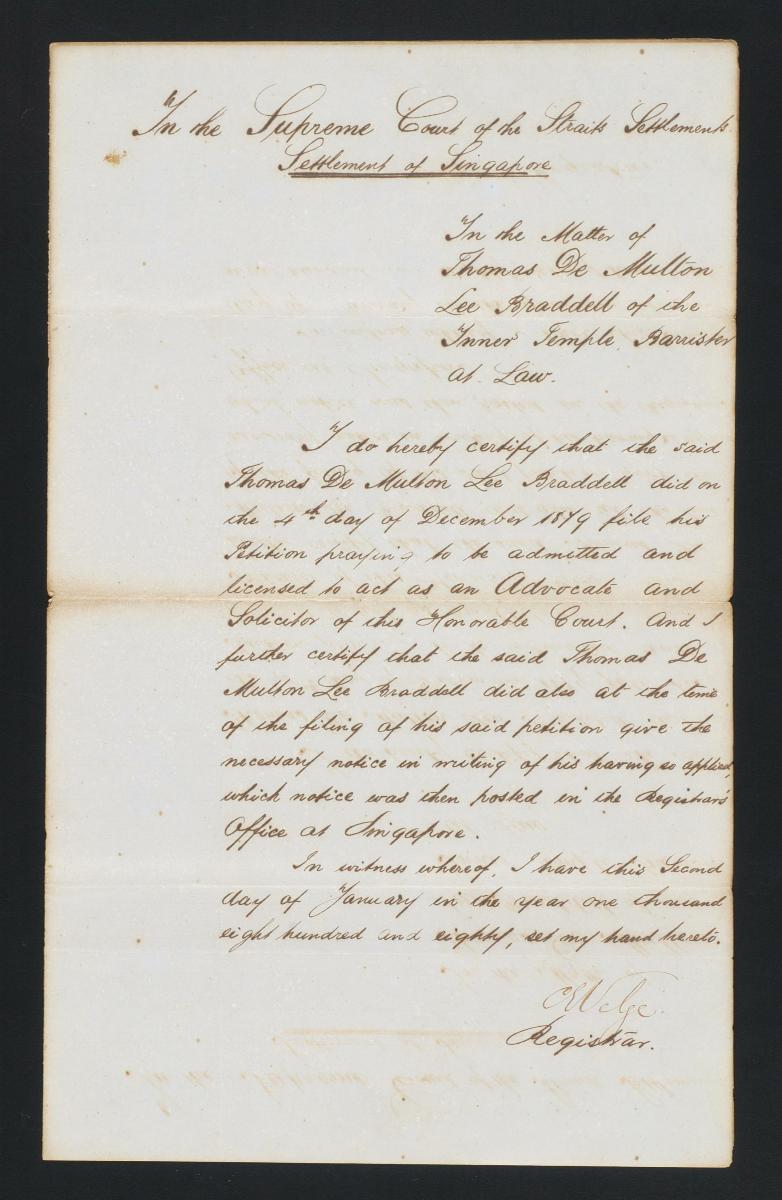 In the Supreme Court of the Straits Settlements
Settlement of Singapore
In the Matter of
Thomas De Multon
Lee Braddell of the
Inner Temple, Barrister
at Law.
I do hereby certify that the said
Thomas De Multon Lee Braddell did on
the 4th day of December 1879 file his
Petition praying to be admitted and
licensed to act as an Advocate and
Solicitor of this Honorable Court. And I
further certify that the said Thomas De
Multon Lee Braddell did also at the time
of the filing of his said petition give the
necessary notice in writing of his having so applied,
which notice was then posted in the Registrar's
Office at Singapore.
In witness whereof, I have this Second
day of January in the year one thousand
eight hundred and eighty, set my hand hereto.
Registrar.